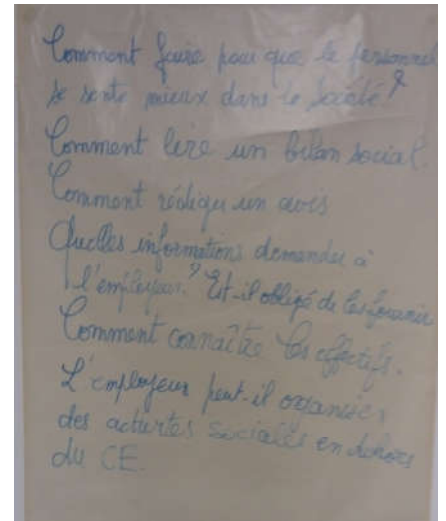 Comment faire pour que le personnel
se sente mieux dans la société?
Comment lire un bilan social.
Comment rédiger un avis
Quelles informations demander à
l'employeur? Est-il obligé de les fournir
Comment connaître les effectifs.
L'employeur peut-il organiser
des activités sociales en dehors
du CE.